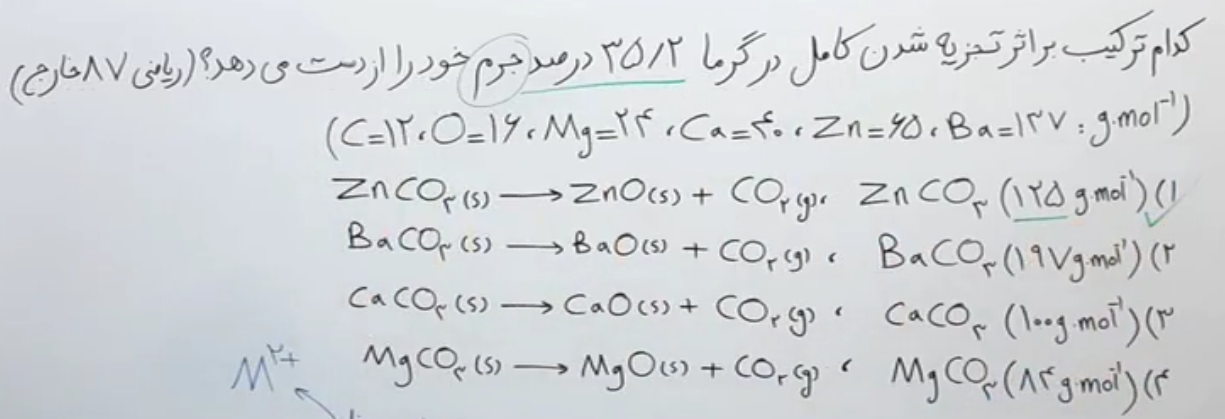 کدام ترکیب بر اثر تجزیه شدن کامل در گرما ۳۵/۲ درصد جرم خود را از دست می دهد؟ (ریاضی ۸۷ خارج)
(C=۱۲، O=۱۶، Mg=۲۴، Ca=۴۰، Zn=۶۵، Ba=۱۳۷ : g.mol⁻¹)
ZnCO₃(s) → ZnO(s) + CO₂(g)، ZnCO₃ (۱۲۵ g.mol⁻¹) (۱
BaCO₃(s) → BaO(s) + CO₂(g)، BaCO₃ (۱۹۷ g.mol⁻¹) (۲
CaCO₃(s) → CaO(s) + CO₂(g)، CaCO₃ (۱۰۰ g.mol⁻¹) (۳
MgCO₃(s) → MgO(s) + CO₂(g)، MgCO₃ (۸۴ g.mol⁻¹) (۴
M²⁺